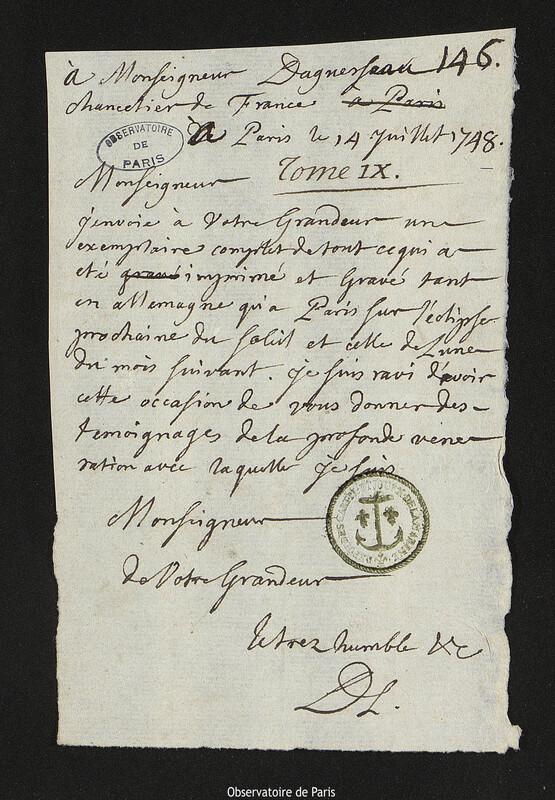 à Monseigneur Daguesseau 146.
chancelier de France a Paris
OBSERVATOIRE DE PARIS
A Paris le 14 Juillet 1748.
Monseigneur Tome IX.
j'envoie à Votre Grandeur une
exemplaire complet de tout ce qui a
eté gravé imprimé et Gravé tant
en allemagne qu'a Paris sur l'éclipse
prochaine du Soleil et celle de Lune
du mois suivant. je suis ravi d'avoir
cette occasion de vous donner des
temoignages de la profonde vene
ration avec laquelle je suis
Monseigneur
de Votre Grandeur
le trez humble &c
DL.
Observatoire de Paris